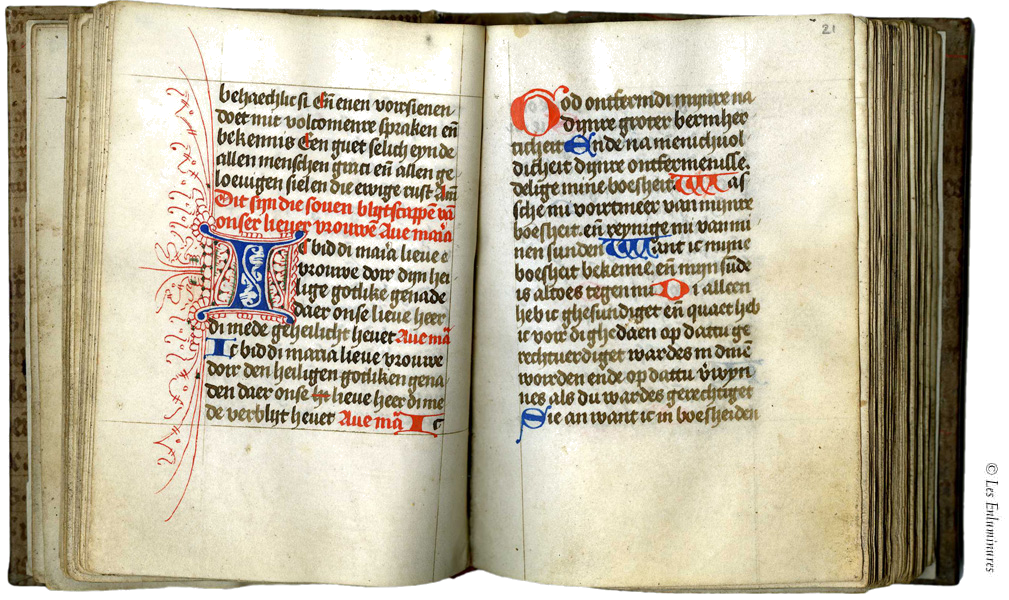 behaechlic si En enen voirsienen
doet mit volcomenre spraken eñ
bekennis En guet selich eynde
allen menschen graci eñ allen ge
loeuigen sielen die ewige rust Am̄
Dit sijn die souen blijtscappē vā
onser lieuer vrouwē Aue maria
Ic bid di maria lieue
vrouwe doir dijn hei
lige gotlike genade
daer onse lieue heer
di mede geheilicht heuet Aue mā
Ic bid di maria lieue vrouwe
doir den heiligen gotliken gena
den daer onse lieue heer di me
de verblijt heuet Aue mā Ic
21
God ontfermdi mijnre na
dijnre groter bermher
ticheit Ende na menichuol
dicheit dijnre ontfermenisse.
delige mine boesheit Was
sche mi voirtmeer van mijnre
boesheit eñ reynige mi van mi
nen sunden Want ic mijne
boesheit bekenne eñ mijn sūde
is altoes tegen mi Di alleen
heb ic ghesundiget eñ quaet heb
ic voir di ghedaen op dattu ge
rechtuerdiget wardes in dinē
woirden ende op dattu v̄wyn
nes als du wardes gerechtiget
Sie an want ic in boesheiden
© Les Enluminures